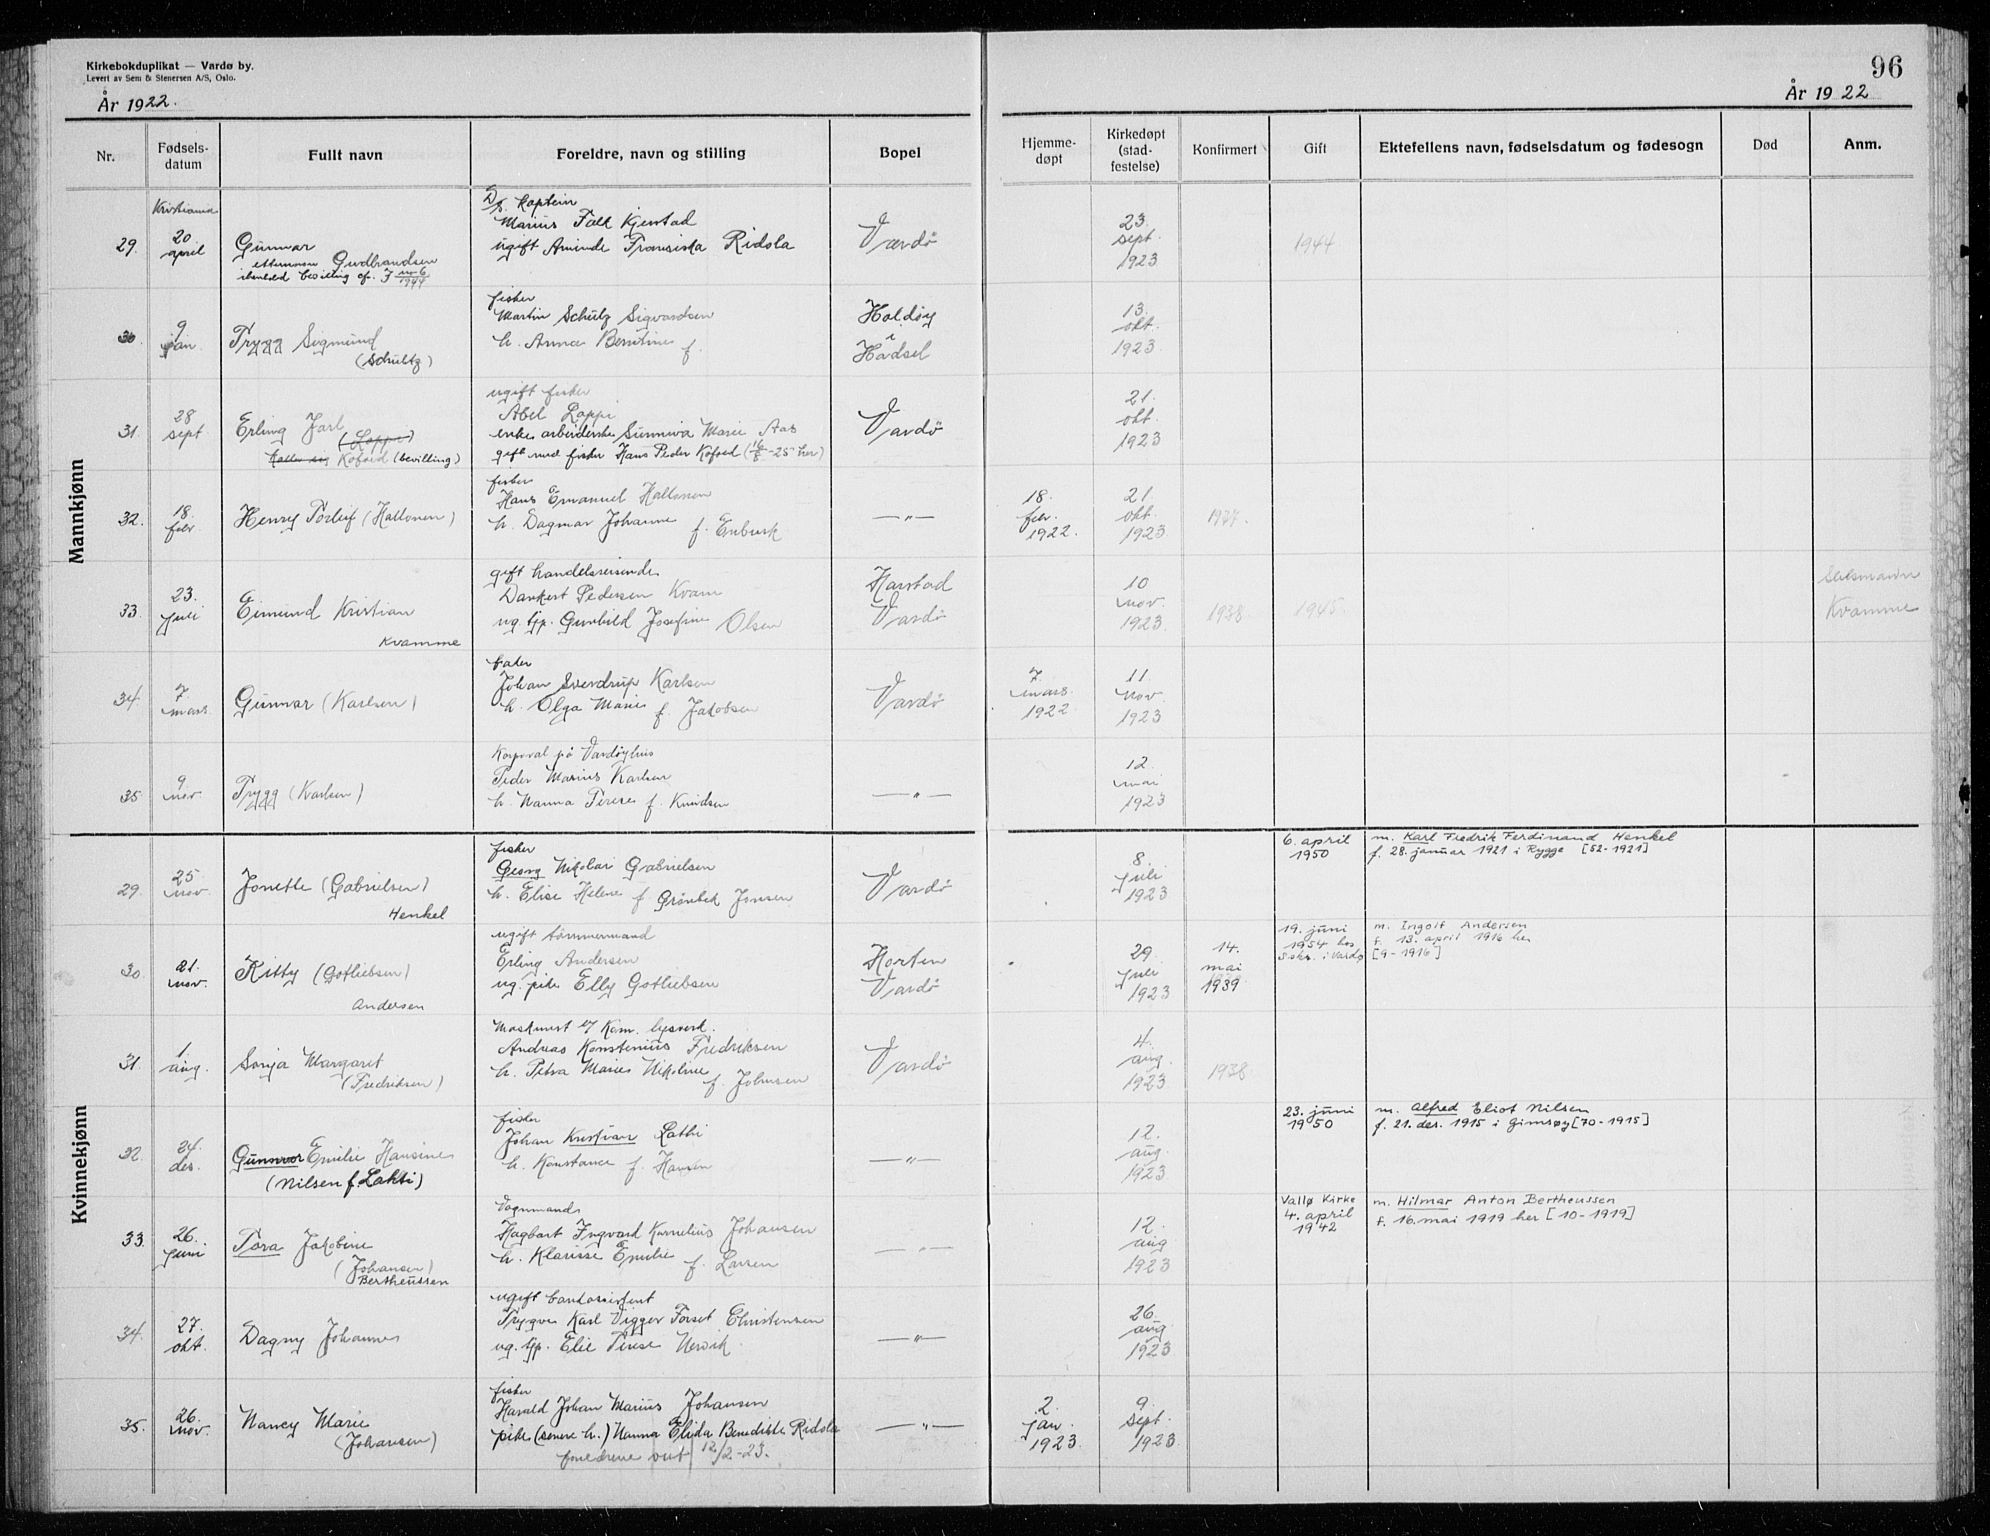 Kirkebokduplikat — Vardø by.
Levert av Sem & Stenersen A/S, Oslo.
År 1922.
96
År 1922
Nr.
Fødsels-
datum
Fullt navn
Foreldre, navn og stilling
Bopel
Hjemme-
døpt
Kirkedøpt
(stad-
festelse)
Konfirmert
Gift
Ektefellens navn, fødselsdatum og fødesogn
Død
Anm.
Mannkjønn
29. Kristiania
20
april
Gunnar
etternavn Gudbrandsen
ihenhold bevilling cfr. J 1944
D/S. kaptein
Marius Falk Kjenstad
ugift Aminde Fransiska Ridola
Vardø
23.
sept.
1923
1944
30. 9
jan.
Trygg Sigmund
(Schultz)
fisker
Martin Schulz Sigvardsen
h. Anna Berntine f.
Holdøy
i
Hadsel
13.
okt.
1923
31. 28
sept.
Erling Jarl
(Lappi)
kaller seg Kofoed (bevilling)
ugift fisker
Abel Lappi
enke arbeiderske Sunniva Marie Aas
gift med fisker Hans Peder Kofoed (16/8-25 her)
Vardø
21.
okt.
1923
32. 18.
febr.
Henry Torleif (Hallonen)
fisker
Hans Emanuel Hallonen
h. Dagmar Johanne f. Enbusk
—"—
18.
febr.
1922.
21.
okt.
1923
33. 23.
juli
Eimund Kristian
Kvamme
gift handelsreisende
Dankert Pedersen Kvam
ug. tjp. Gunhild Josefine Olsen
Harstad
Vardø
10
nov.
1923
1938
1945.
Kvamme
34. 7.
mars.
Gunnar (Karlsen)
Johan Sverdrup Karlsen
h. Olga Marie f. Jakobsen
Vardø
7.
mars.
1922
11.
nov.
1923
35. 9
nov
Trygg (Karlsen)
Korporal på Vardøyhus
Peder Marius Karlsen
h. Nanna Terese f. Knudsen
—"—
12.
mai
1923
Kvinnekjønn
29. 25
nov.
Jonette (Gabrielsen)
Henkel
fisker
Georg Nikolai Gabrielsen
h. Elise Helene f. Grönbek Jensen
Vardø
8.
juli
1923
6. april
1950
m. Karl Fredrik Ferdinand Henkel
f. 28. januar 1921 i Rygge [52-1921]
30. 21.
nov.
Kitty (Gotliebsen)
Andersen
ugift tømmermand
Erling Andersen
ug. pike Elly Gotliebsen
Horten
Vardø
29.
juli
1923
14.
mai
1939
19. juni
1954 hos
s.skr. i Vardø
m. Ingolf Andersen
f. 13. april 1916 her
[9-1916]
31. 1
aug.
Sonja Margaret
(Fredriksen)
Maskinist v/ Kom. lysverk.
Andreas Konstenius Fredriksen
h. Petra Maries Nikoline f. Johnsen
Vardø
4.
aug.
1923
1938
32. 24.
des.
Gunnvor Emilie Hansine
(Nilsen f. Lahti)
fisker
Johan Kristian Lathi
h. Konstance f. Hansen
—"—
12.
aug.
1923
23. juni
1950
m. Alfred Eliot Nilsen
f. 21. des. 1915 i Gimsøy [70-1915]
33. 26.
juni
Tora Jakobine
(Johansen)
Bertheussen
Vognmand
Hagbart Ingvard Kornelius Johansen
h. Klarisse Emilie f. Larsen
—"—
12.
aug
1923
Vallø Kirke
4. april
1942
m. Hilmar Anton Bertheussen
f. 16. mai 1919 her [10-1919]
34. 27.
okt.
Dagny Johannes
ugift bankassistent
Trygve Karl Vigger Forset Christensen
ug. tjp. Elie Terese Nervik.
—"—
26.
aug.
1923
35. 26.
nov.
Nancy Marie
(Johansen)
fisker
Harald Johan Marius Johansen
pike (senere h.) Nanna Elida Benedikte Ridola
foreldrene viet 12/2-23.
—"—
2.
jan.
1923
9.
sept.
1923